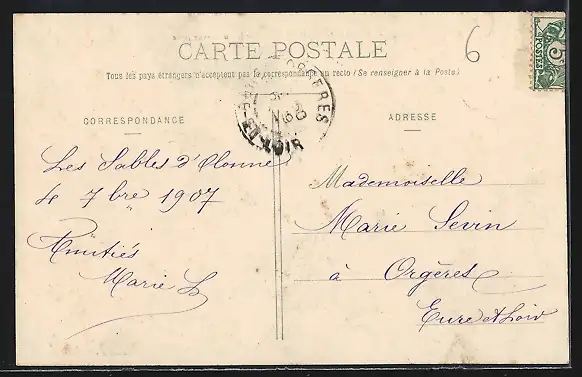 CARTE POSTALE
6
Tous les pays étrangers n'acceptent pas la correspondance au recto (Se renseigner à la Poste)
5c
POSTES
ORGÈRES
EURE-ET-LOIR
CORRESPONDANCE
Les Sables d'Olonne
le 7 bre 1907
Amitiés
Marie L
ADRESSE
Mademoiselle
Marie Sevin
à Orgères
Eure et Loir